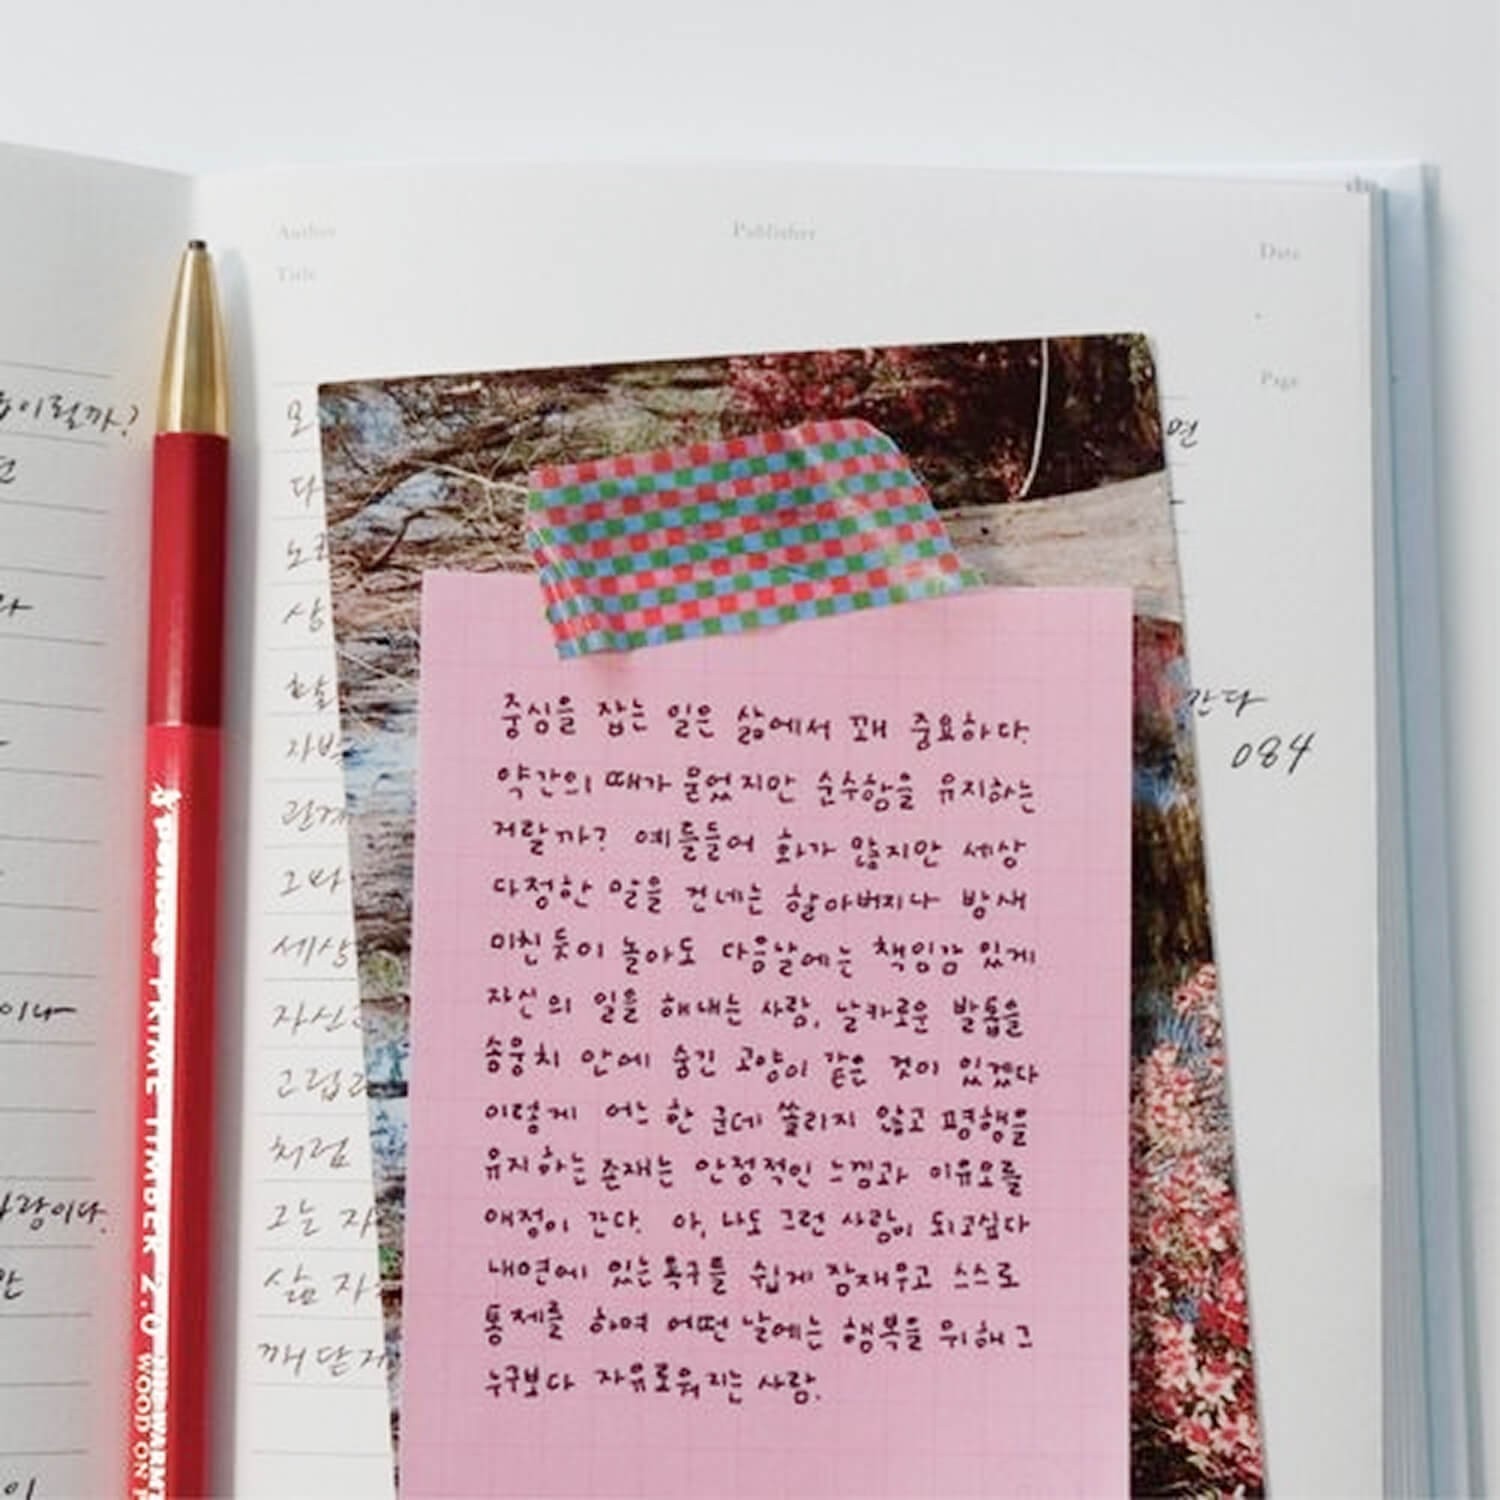 Author
Publisher
Date
Title
Page
이럴까?
면
다
상
자신
세상
처럼
그는 자
삶 자
깨닫게
간다
084
랑이다.
중심을 잡는 일은 삶에서 꽤 중요하다.
약간의 때가 묻었지만 순수함을 유지하는
거랄까? 예를들어 화가 많지만 세상
다정한 말을 건네는 할아버지나 밤새
미친듯이 놀아도 다음날에는 책임감 있게
자신의 일을 해내는 사람, 날카로운 발톱을
솜뭉치 안에 숨긴 고양이 같은 것이 있겠다
이렇게 어느 한 군데 쏠리지 않고 평행을
유지하는 존재는 안정적인 느낌과 이유모를
애정이 간다. 아, 나도 그런 사람이 되고싶다
내면에 있는 욕구를 쉽게 잠재우고 스스로
통제를 하며 어떤 날에는 행복을 위해 그
누구보다 자유로워지는 사람.
PRIME TIMBER 2.0
WOOD ON